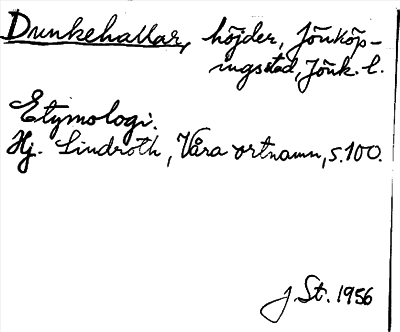 Dunkehallar, höjder, Jönköp-
ingsstad, Jönk. l.
Etymologi.
Hj. Lindroth, Våra ortnamn, s. 100.
J St. 1956